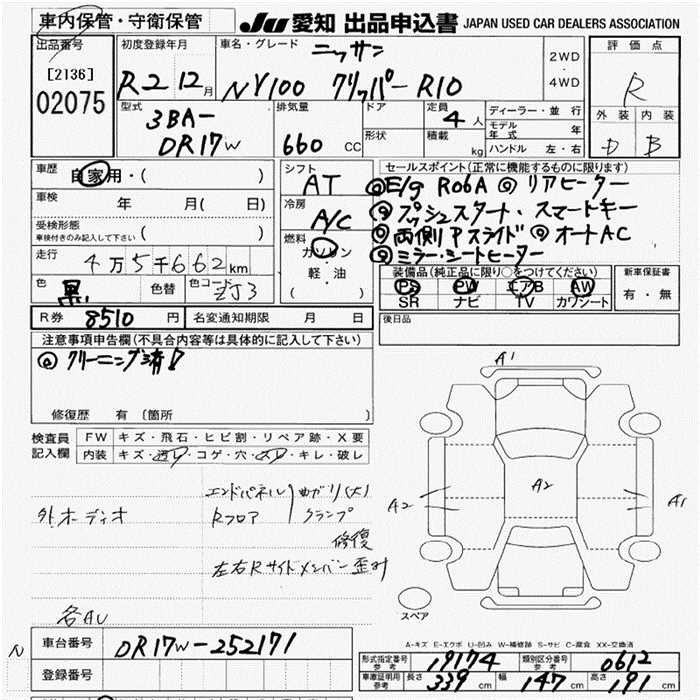 車内保管・守衛保管
JU 愛知 出品申込書 JAPAN USED CAR DEALERS ASSOCIATION
出品番号
[2136]
02075
初度登録年月
R2 12月
車名・グレード
ニッサン
NV100 クリッパー R10
2WD
・
4WD
評価点
R
外装 内装
D B
型式
3BA-
DR17W
排気量
660 CC
ドア
形状
定員
4人
積載
kg
ディーラー・並行
モデル年式 年
ハンドル 左・右
車歴
自家用・( )
車検 年 月( 日)
受検形態
車検付きのみ記入して下さい ( )
走行
4万5千662km
色
黒
色替
色コード
ZJ3
シフト
AT
冷房
A/C
燃料
ガソリン
軽・油
( )
セールスポイント(正常に機能するものに限ります)
◎E/g R06A ◎リアヒーター
◎プッシュスタート・スマートキー
◎両側Pスライド ◎オートAC
◎ミラー・シートヒーター
装備品(純正品に限り○をつけてください)
PS PW エアB AW
SR ナビ TV カワシート
新車保証書
有・無
R券 8510 円
名変通知期限 月 日
後日品
注意事項申告欄(不具合内容等は具体的に記入して下さい)
◎クリーニング済!
修復歴 有 〔箇所 〕
検査員
記入欄
FW キズ・飛石・ヒビ割・リペア跡・X要
内装 キズ・汚レ・コゲ・穴・スレ・キレ・破レ
外オーディオ
エンドパネル
Rフロア
曲ガリ(大)
クランプ
修復
左右Rサイドメンバー歪み
各AU
A1
A2
A2
A1
スペア
A-キズ E-エクボ U-凹み W-補修跡 S-サビ C-腐食 XX-交換済
N
車台番号 DR17W-252171
登録番号
形式指定番号
参考
19174
類別区分番号
参考
0612
車庫証明用
参考
長さ 339 cm 幅 147 cm 高さ 191 cm